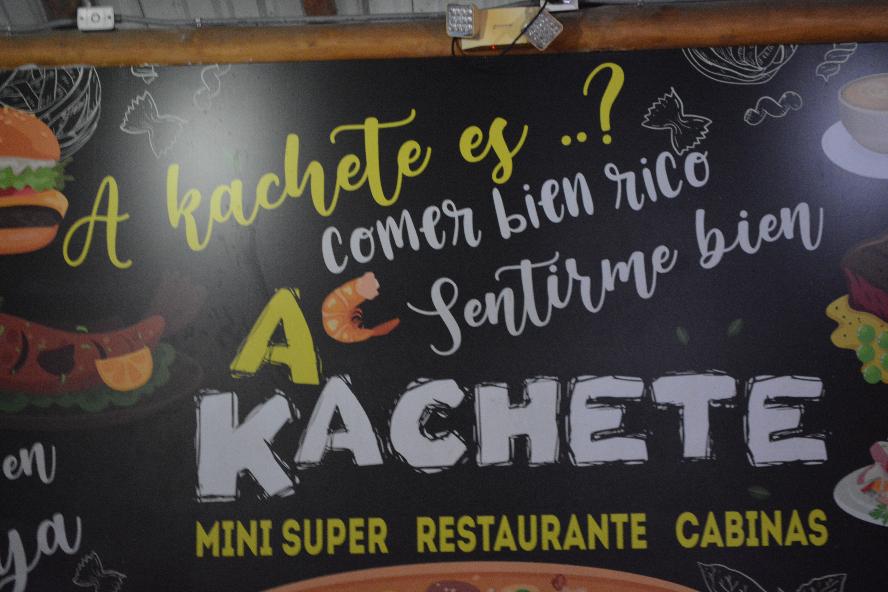 A kachete es ..?
comer bien rico
Sentirme bien
A
KACHETE
en
ya
MINI SUPER RESTAURANTE CABINAS